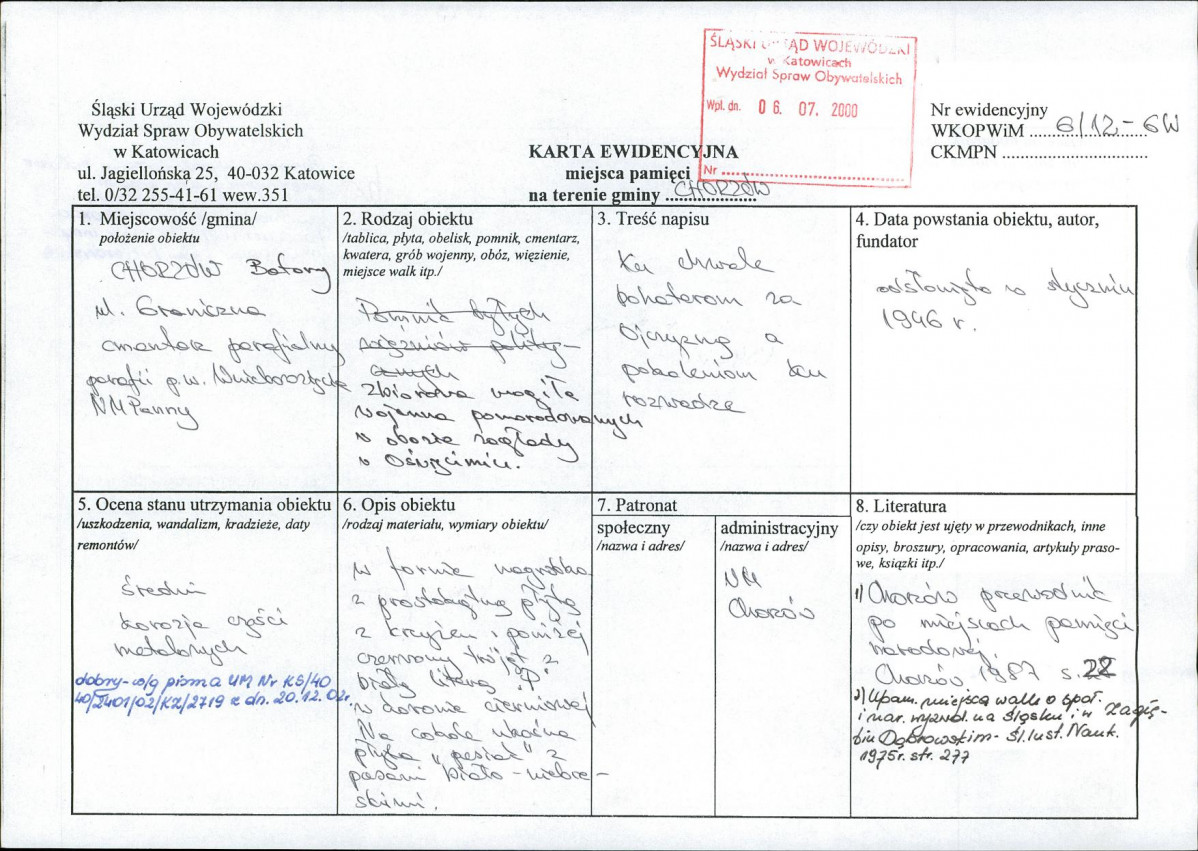 ŚLĄSKI URZĄD WOJEWÓDZKI
w Katowicach
Wydział Spraw Obywatelskich
Wpl. dn. 06. 07. 2000
Nr
Śląski Urząd Wojewódzki
Wydział Spraw Obywatelskich
w Katowicach
ul. Jagiellońska 25, 40-032 Katowice
tel. 0/32 255-41-61 wew.351
KARTA EWIDENCYJNA
miejsca pamięci
na terenie gminy CHORZÓW
Nr ewidencyjny
WKOPWiM 6/12-6W
CKMPN
1. Miejscowość /gmina/
położenie obiektu
CHORZÓW Batory
ul. Graniczna
cmentarz parafialny
parafii p.w. Wniebowzięcia
NMPanny
2. Rodzaj obiektu
/tablica, płyta, obelisk, pomnik, cmentarz,
kwatera, grób wojenny, obóz, więzienie,
miejsce walk itp./
Pomnik byłych
więźniów polity-
cznych
Zbiorowa mogiła
wojenna pomordowanych
w obozie zagłady
w Oświęcimiu.
3. Treść napisu
Ku chwale
bohaterom za
Ojczyznę a
pokoleniom ku
rozwadze
4. Data powstania obiektu, autor,
fundator
odsłonięto w styczniu
1946 r.
5. Ocena stanu utrzymania obiektu
/uszkodzenia, wandalizm, kradzieże, daty
remontów/
średni
korozja części
metalowych
dobry - w/g pisma UM Nr KS/40
40/2401/02/KZ/2719 z dn. 20.12.02r.
6. Opis obiektu
/rodzaj materiału, wymiary obiektu/
w formie nagrobka
z prostokątną płytą
z krzyżem i poniżej
czerwony trójkąt z
białą literą "P"
w koronie cierniowej
Na cokole ukośna
płyta "pasiak" z
pasami biało-niebie-
skimi.
7. Patronat
społeczny
/nazwa i adres/
administracyjny
/nazwa i adres/
UM
Chorzów
8. Literatura
/czy obiekt jest ujęty w przewodnikach, inne
opisy, broszury, opracowania, artykuły praso-
we, książki itp./
1) Chorzów przewodnik
po miejscach pamięci
narodowej.
Chorzów 1987 s. 22
2) Upam. miejsca walk o społ.
i nar. wyzwol. na Śląsku i w Zagłę-
biu Dąbrowskim - Śl. Inst. Nauk.
1975r. str. 277